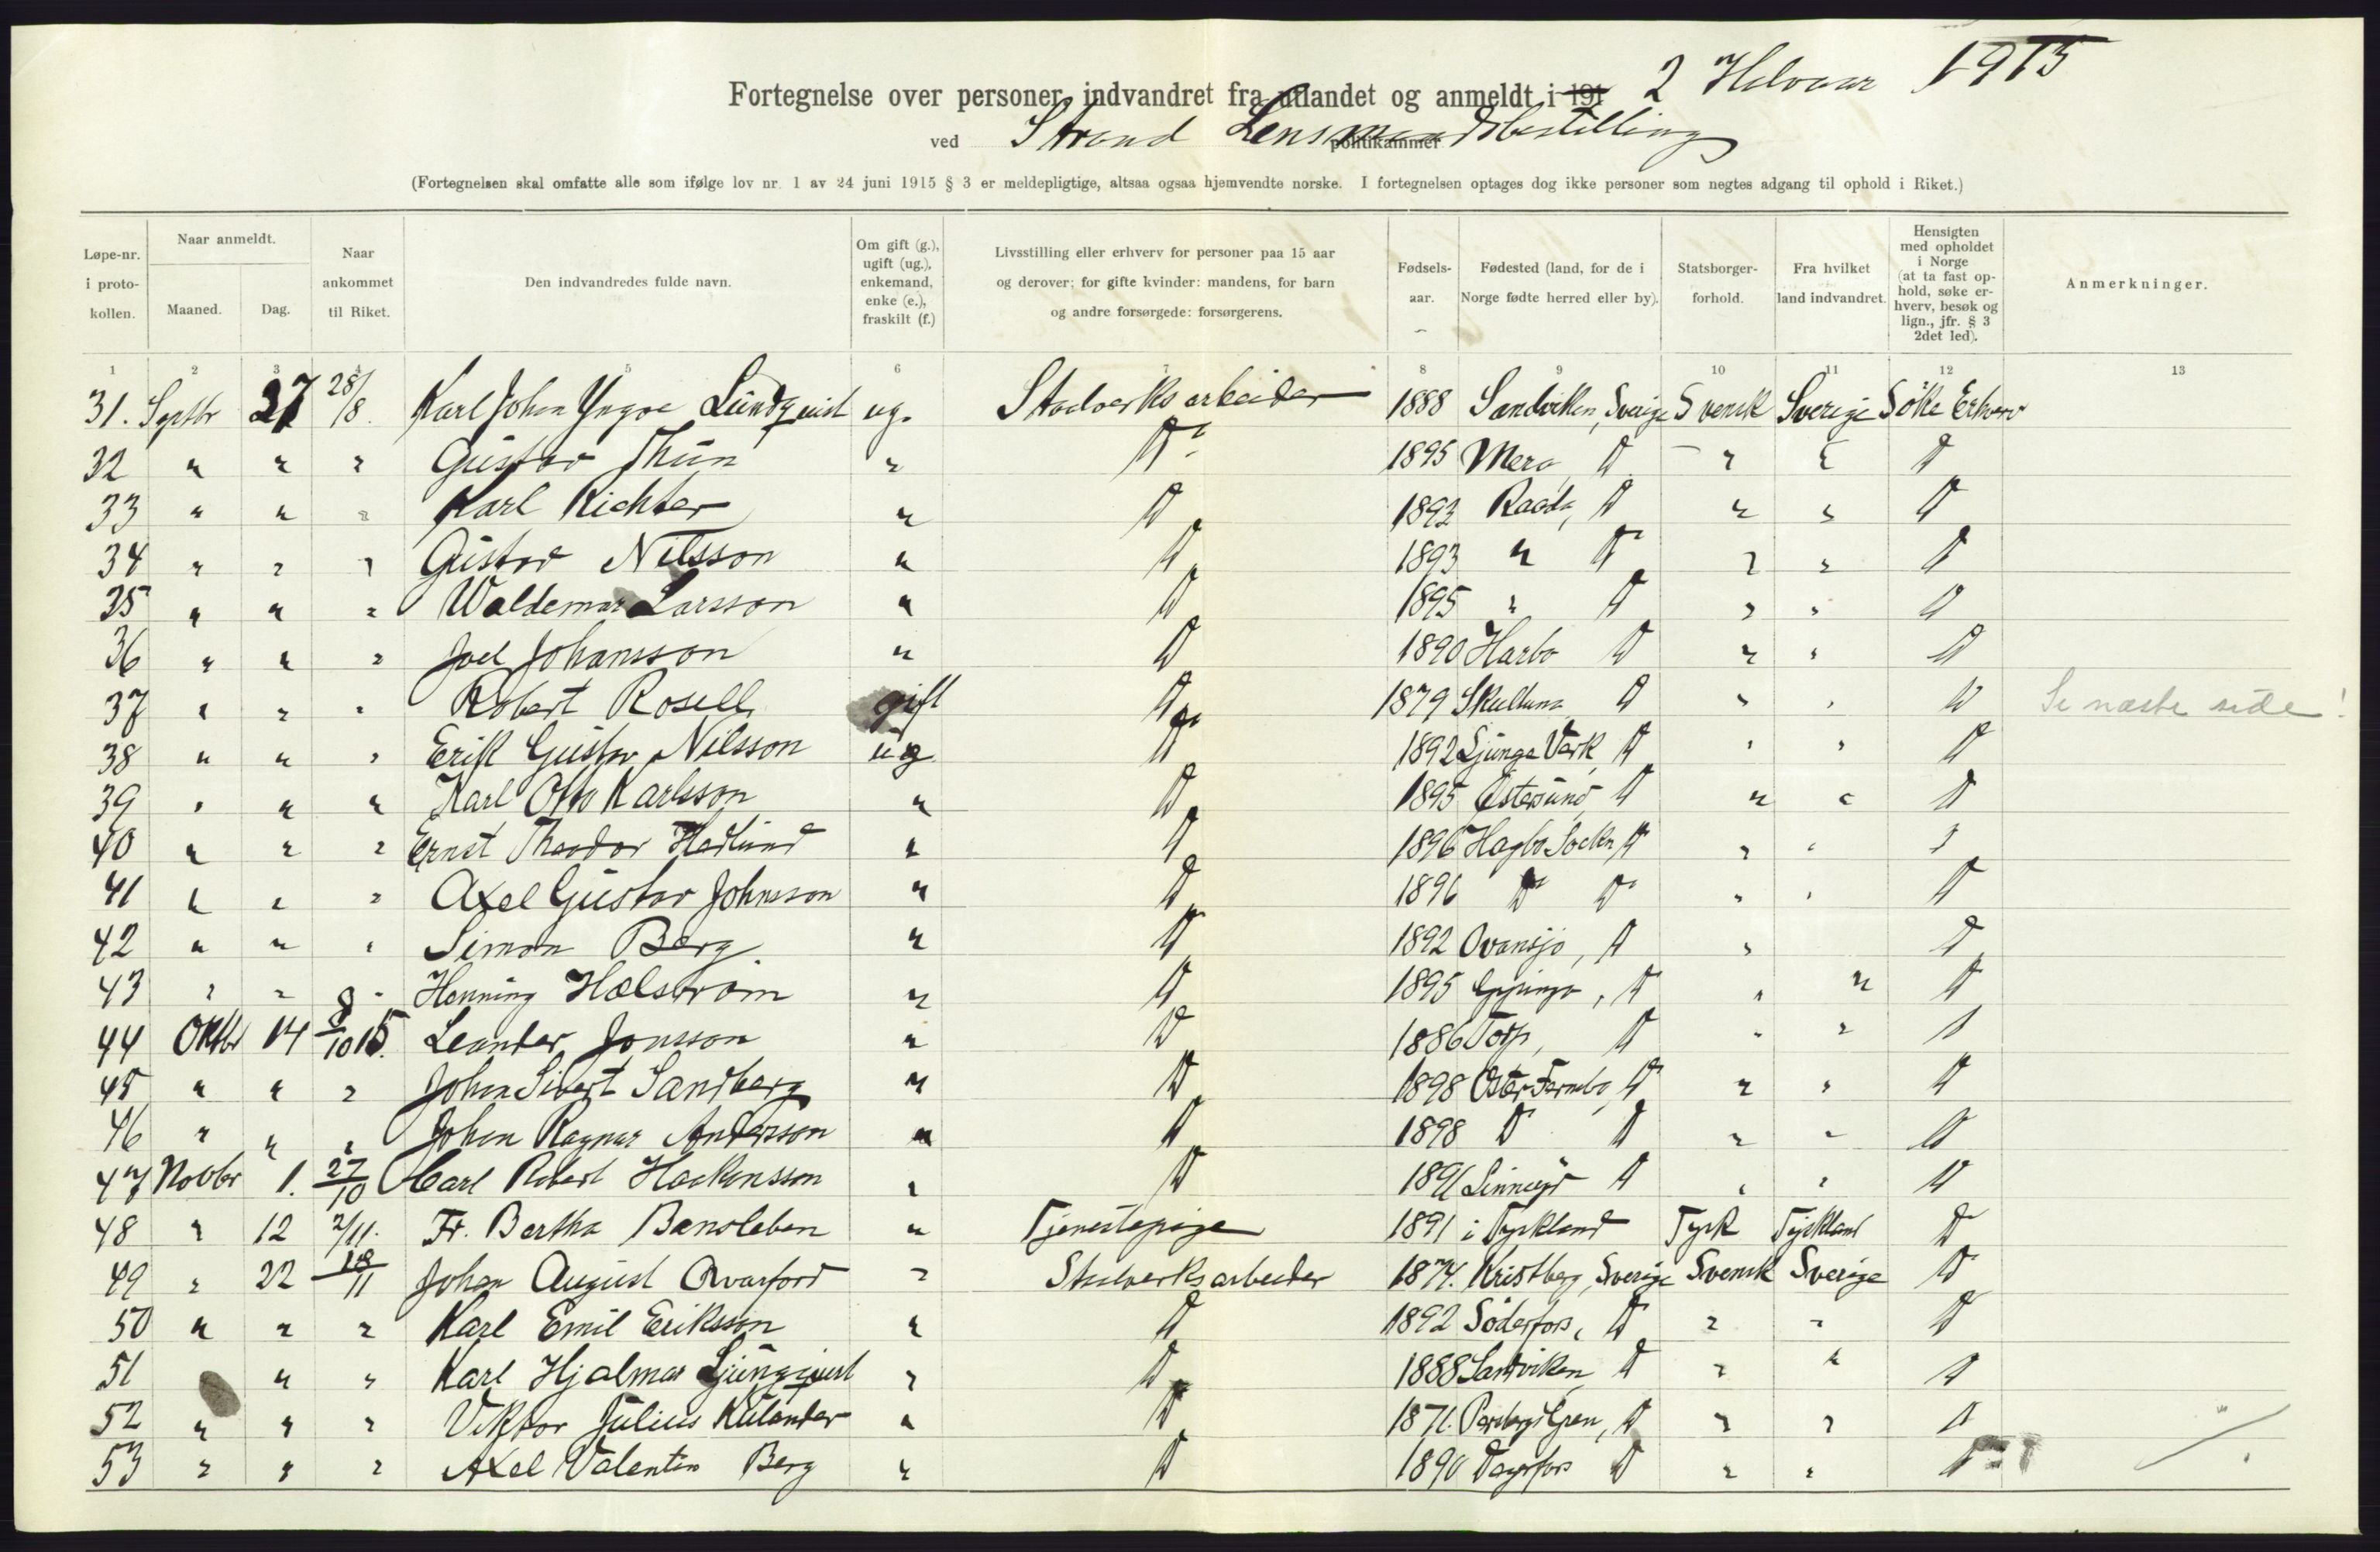 Fortegnelse over personer, indvandret fra utlandet og anmeldt i 191 2 Halvaar 1915
ved Strand Lensmandsbestilling politikammer
(Fortegnelsen skal omfatte alle som ifølge lov nr. 1 av 24 juni 1915 § 3 er meldepligtige, altsaa ogsaa hjemvendte norske. I fortegnelsen optages dog ikke personer som negtes adgang til ophold i Riket.)
Løpe-nr. i proto-kollen. Naar anmeldt. Maaned. Dag. Naar ankommet til Riket. Den indvandredes fulde navn. Om gift (g.), ugift (ug.), enkemand, enke (e.), fraskilt (f.) Livsstilling eller erhverv for personer paa 15 aar og derover; for gifte kvinder: mandens, for barn og andre forsørgede: forsørgerens. Fødsels-aar. Fødested (land, for de i Norge fødte herred eller by). Statsborger-forhold. Fra hvilket land indvandret. Hensigten med opholdet i Norge (at ta fast op-hold, søke er-hverv, besøk og lign., jfr. § 3 2det led). Anmerkninger.
1 2 3 4 5 6 7 8 9 10 11 12 13
31. Septbr 27 28/8. Karl Johan Yngve Lundquist ug. Staalverksarbeider 1888 Sandviken, Sverige Svensk Sverige Söke Erhverv
32 " " " Gustav Thun " D° 1895 D° " " D°
33 " " " Karl Richter " D° 1892 Raada, D° " " D°
34 " " " Gustav Nilsson " D° 1893 " D° " " D°
35 " " " Waldemar Larsson " D° 1895 " D° " " D°
36 " " " Joel Johansson " D° 1890 Harbo D° " " D°
37 " " " Robert Rosell gift D° 1879 Skultuna D° " " D° Se næste side!
38 " " " Erik Gustav Nilsson ug D° 1892 Ljunga Värk, D° " " D°
39 " " " Karl Otto Karlsson " D° 1895 Östersund, D° " " D°
40 " " " Ernst Theodor Hedlund " D° 1896 Högbo Socken D° " " "
41 " " " Axel Gustav Johnsson " D° 1896 D° D° " " D°
42 " " " Simon Berg " D° 1892 Ovansjö, D° " D°
43 " " " Henning Hälström " D° 1895 D° " " D°
44 Oktbr 14 8/10 15. Leander Jonsson " D° 1886 Torp, D° " " D°
45 " " " Johan Sivert Sandberg " D° 1898 Öster Färnebo, D° " " D°
46 " " " Johan Ragnar Andersson " D° 1898 D° D° " " D°
47 Novbr 1. 27/10 Carl Robert Haakansson " D° 1891 D° " " D°
48 " 12 2/11. Fr. Bertha Bansleben " Tjenestepige 1891 i Tyskland Tysk Tyskland D°
49 " 22 18/11 Johan August Qvarford " Staalverksarbeider 1874. Kristberg, Sverige Svensk Sverige D°
50 " " " Karl Emil Eriksson " D° 1892 Söderfors, D° " " D°
51 " " Karl Hjalmar Ljungquist " D° 1888 Sandviken D° " " D°
52 " " " Viktor Julius Kulander " D° 1871. D° " " D°
53 " " " Axel Valentin Berg " D° 1890 Degerfors D° " " D°